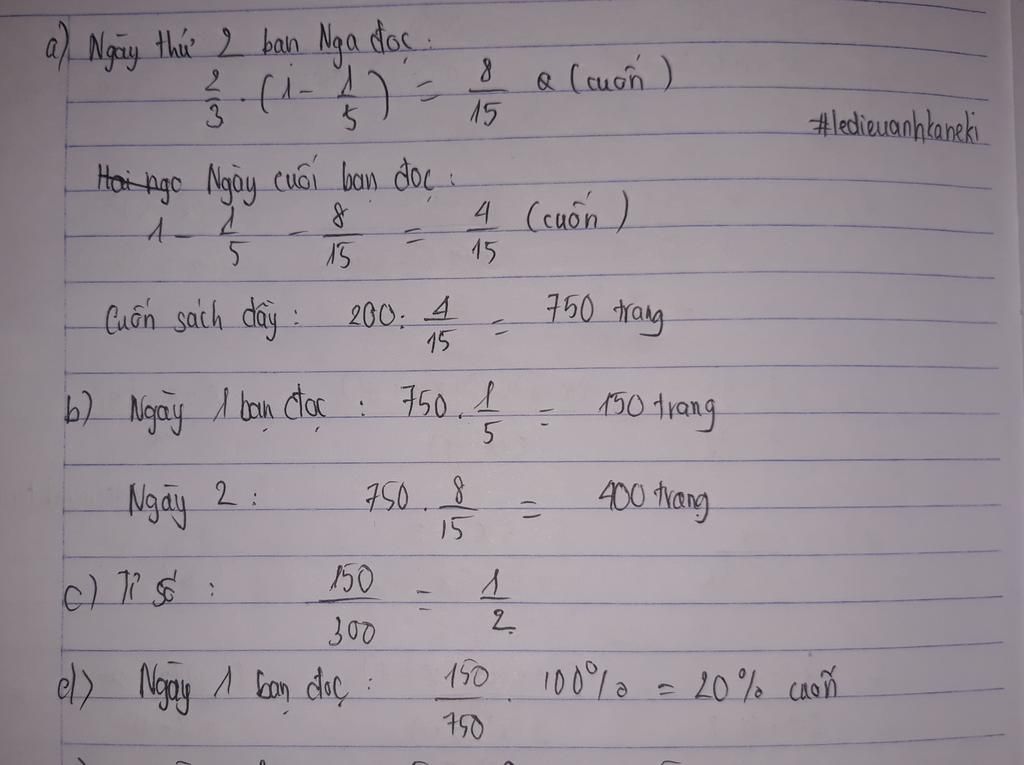 a) Ngày thứ 2 bạn Nga đọc:
2/3 . (1 - 1/5) = 8/15 (cuốn)
#ledieuanhkaneki
Hai ngo Ngày cuối bạn đọc:
1 - 1/5 - 8/15 = 4/15 (cuốn)
Cuốn sách dầy: 200: 4/15 = 750 trang
b) Ngày 1 bạn đọc: 750 . 1/5 = 150 trang
Ngày 2: 750 . 8/15 = 400 trang
c) Tỉ số: 150/300 = 1/2
d) Ngày 1 bạn đọc: 150/750 . 100% = 20% cuốn